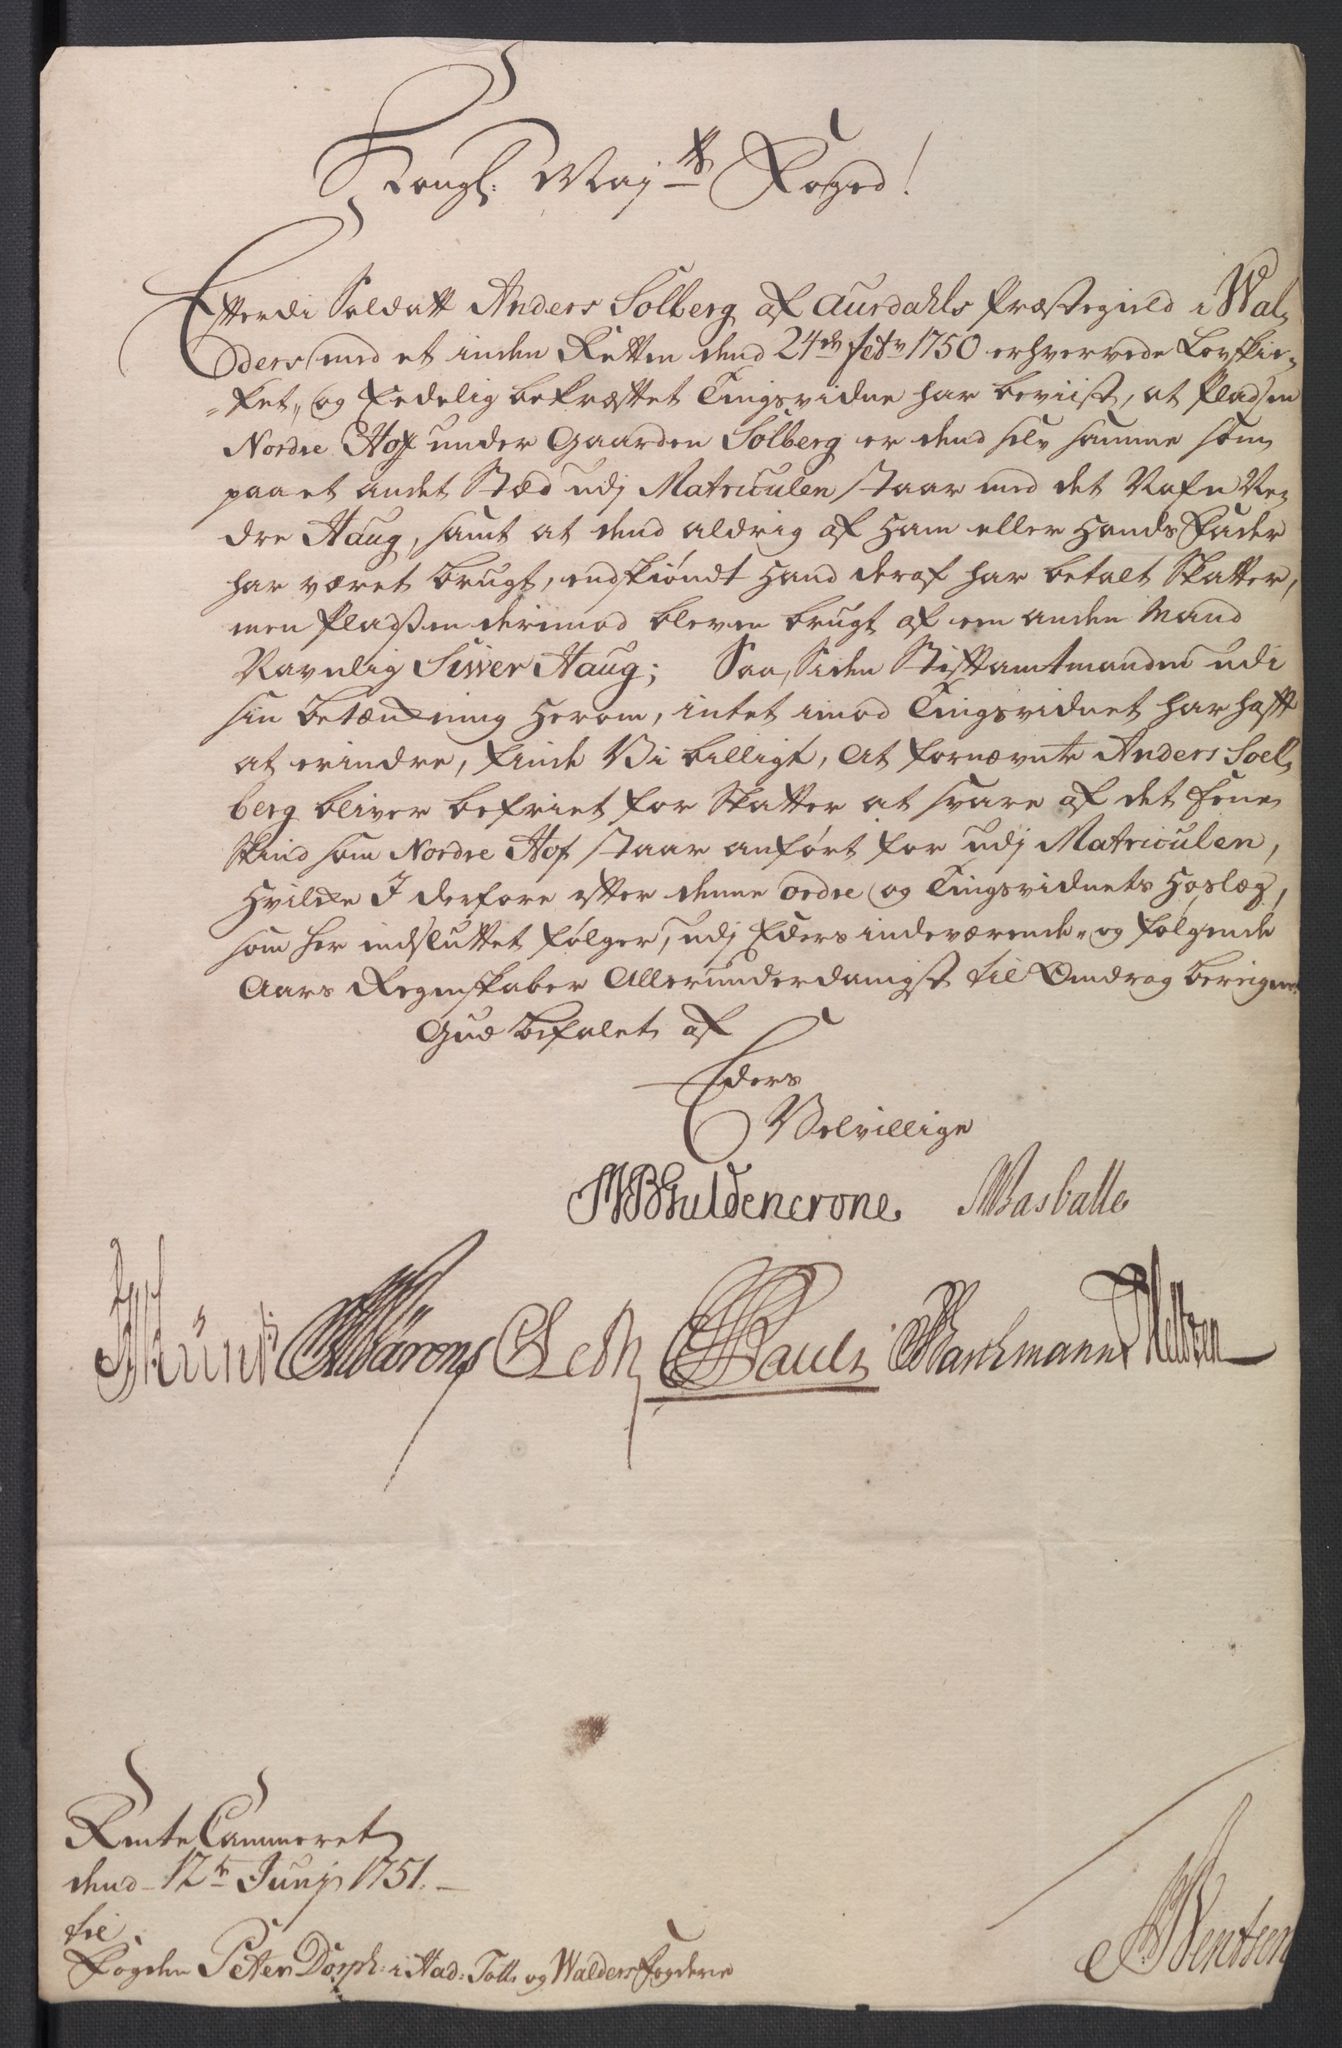 Kongl: Maj:ts Foged!
Efterdi Soldatt Anders Solberg af Aurdahls Præstegield i Wal-
ders med et inden Retten dend 24de febr 1750 erhvervede Lovskik-
ket, og Eedelig bekræfttet Tingsvidne har beviist, at Pladsen
Nordre Hof under Gaarden Solberg er dend selv samme som
paa et andet Stæd udj Matriculen staar med det Nafn Ne-
dre Haug, samt at dend aldrig af ham eller hands Fader
har været brugt, endskiöndt hand deraf har betalt Skatter,
men Pladsen derimod bleven brugt af een anden Mand
Navnlig Siwer Haug; Saa, Siden Stiftamtmanden udi
sin betænkning herom, intet imod Tingsvidnet har hafft
at erindre, finde Vi billigt, at fornævnte Anders Soel-
berg bliver befriet for Skatter at svare af det Eene
Skind som Nordre Hof staar anført for udj Matriculen,
hvilke I derfore efter denne ordre og Tingsvidnets hoslæg,
som her indsluttet følger, udj Eders indeværende- og følgende
Aars Regenskaber Allerunderdanigst til Omdrag bereigner.
Gud befalet af
Eders
Velvillige
MBGuldencrone Basballe
Münt Bärens CLeth Pauli Bachmann Neltzen
RenteCammeret
dend 12te Junj 1751.
til
Fogden Peter Dorph i Had: Tott: og Walders Fogderie
Wentsen